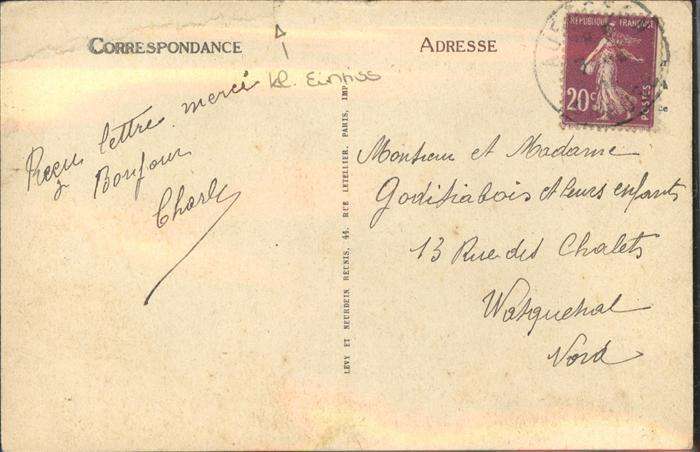 CORRESPONDANCE
ADRESSE
kl. Einriss
Reçu lettre merci
Bonjour
Charly
LÉVY ET NEURDEIN RÉUNIS, 44, RUE LETELLIER, PARIS, IMP.
RÉPUBLIQUE FRANÇAISE
20c
POSTES
Monsieur et Madame
et leurs enfants
13 Rue des Chalets
Wasquehal
Nord